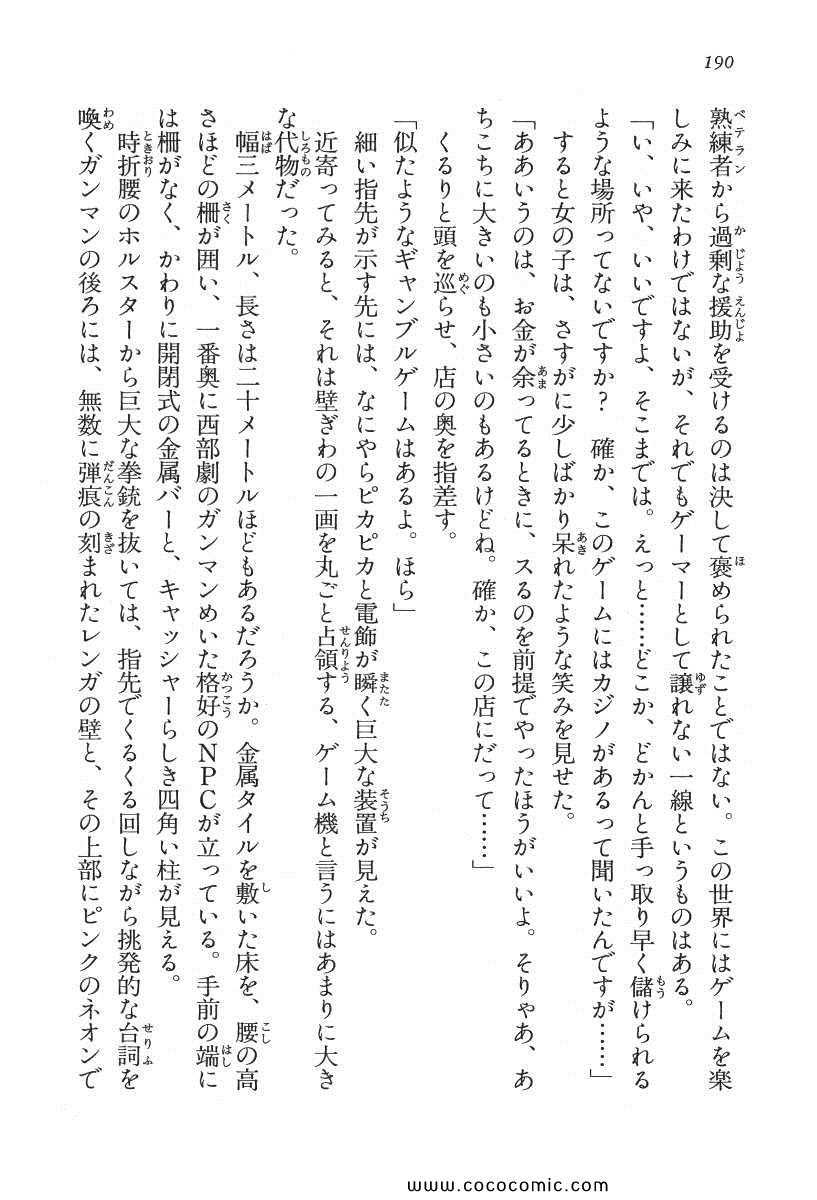 190
熟練者から過剰な援助を受けるのは決して褒められたことではない。この世界にはゲームを楽
しみに来たわけではないが、それでもゲーマーとして譲れない一線というものはある。
「い、いや、いいですよ、そこまでは。えっと……どこか、どかんと手っ取り早く儲けられる
ような場所ってないですか？　確か、このゲームにはカジノがあるって聞いたんですが……」
すると女の子は、さすがに少しばかり呆れたような笑みを見せた。
「ああいうのは、お金が余ってるときに、スるのを前提でやったほうがいいよ。そりゃあ、あ
ちこちに大きいのも小さいのもあるけどね。確か、この店にだって……」
くるりと頭を巡らせ、店の奥を指差す。
「似たようなギャンブルゲームはあるよ。ほら」
細い指先が示す先には、なにやらピカピカと電飾が瞬く巨大な装置が見えた。
近寄ってみると、それは壁ぎわの一画を丸ごと占領する、ゲーム機と言うにはあまりに大き
な代物だった。
幅三メートル、長さは二十メートルほどもあるだろうか。金属タイルを敷いた床を、腰の高
さほどの柵が囲い、一番奥に西部劇のガンマンめいた格好のＮＰＣが立っている。手前の端に
は柵がなく、かわりに開閉式の金属バーと、キャッシャーらしき四角い柱が見える。
時折腰のホルスターから巨大な拳銃を抜いては、指先でくるくる回しながら挑発的な台詞を
喚くガンマンの後ろには、無数に弾痕の刻まれたレンガの壁と、その上部にピンクのネオンで
www.cococomic.com/